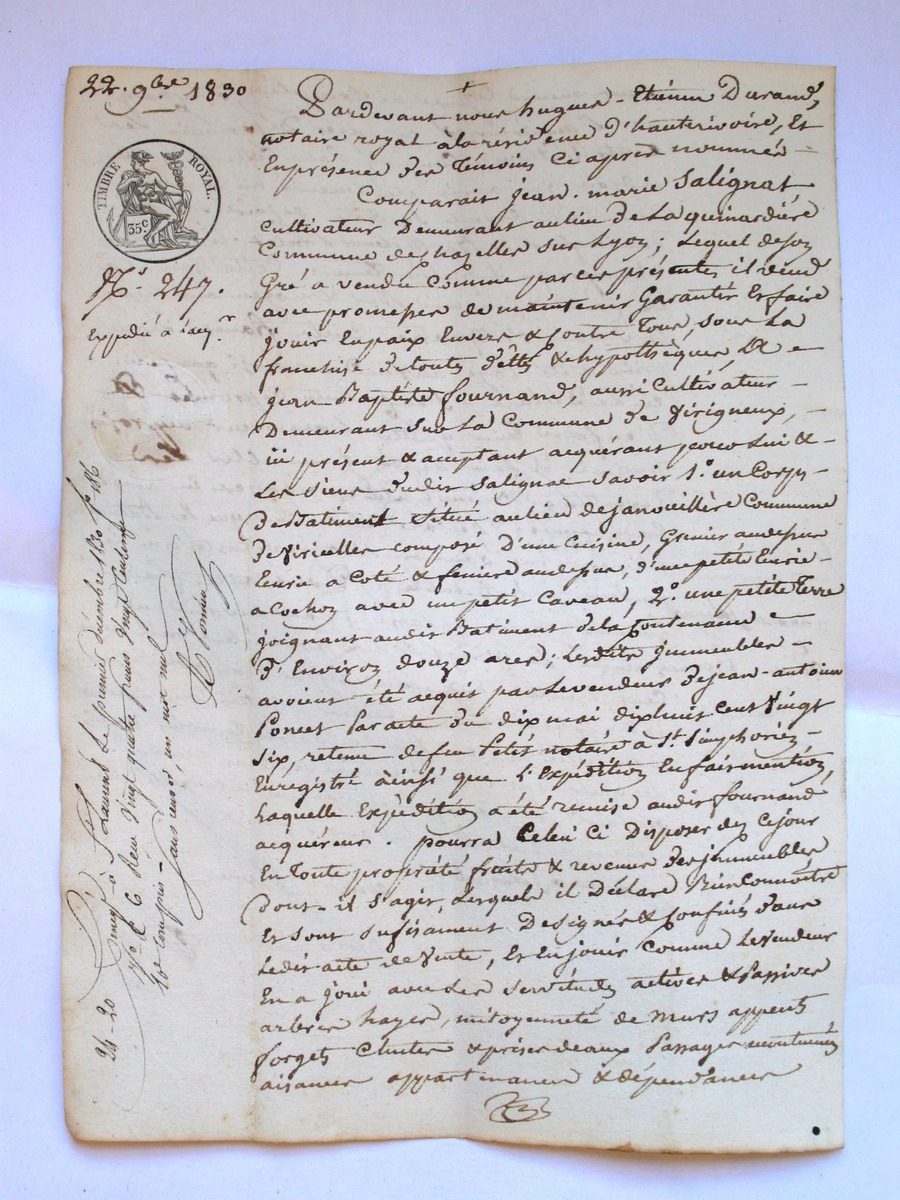 22. 9bre 1830
TIMBRE ROYAL.
35c
N° 247.
Expédié à l'acqr
Pardevant nous hugues - Etienne Durand,
notaire royal à la résidence d'hauterivoire, Et
En présence des Témoins Ci après nommés -
Comparait Jean-marie Salignat
Cultivateur Demeurant au lieu de La quinardière
Commune de chazelles sur Lyon ; Lequel de son
Gré a vendu Comme par ces présentes il vend
avec promesse de maintenir Garantir Et faire
jouir En paix Envers & Contre Tous, sous La
franchise de toutes dettes & hypothèques, A
jean Baptiste fournand, aussi Cultivateur -
Demeurant sur La Commune de Virigneux, -
ici présent & acceptant acquérant pour Lui &
Les Siens dudit Salignac Savoir 1° un Corps
De Batiment Situé au lieu de janouillère Commune
De Viricelles composé D'une Cuisine, Grenier au dessus
Ecurie a Coté & feniere au dessus, d'une petite Ecurie
a Cochon avec un petit Caveau, 2° une petite Terre
joignant audit Batiment de la Contenance
D'Environ douze ares ; Lesdits jmmeubles -
avoient été acquis par Le vendeur De jean-antoine
Poncet Par acte du dix mai dix huit Cent Vingt
Six, retenu de feu Petit notaire à St. Simphorien
Enregistré àinsi que l'Expédition En fait mention,
Laquelle Expédition a été remise audit fournand
acquéreur. pourra Celui Ci Disposer dès Ce jour
En Toute propriété fruits & revenus Des jmmeubles
Dont il s'agit, Lesquels il Déclare Bien Connoitre
Et sont sufisament Designés & Confinés dans
Ledit acte de Vente, Et En jouir Comme Le Vendeur
En a joui avec Les Servitudes actives & Passives
arbres hayes, mitoyenneté de murs appents
forgets Chutes & prises deaux Passages accoutumés
aisances appartenances & dépendances
24-20
Enregt à St Laurent Le premier decembre 1830 fo 186
Vo C 6 Reçu Vingt quatre francs Vingt Centimes
10e Compris -
sans renvoi ni mot nul